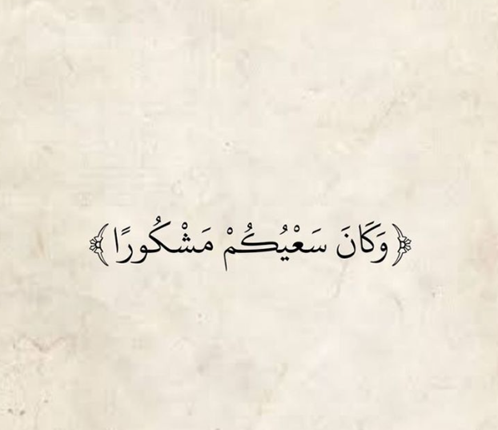 ﴿وَكَانَ سَعْيُكُمْ مَشْكُورًا﴾